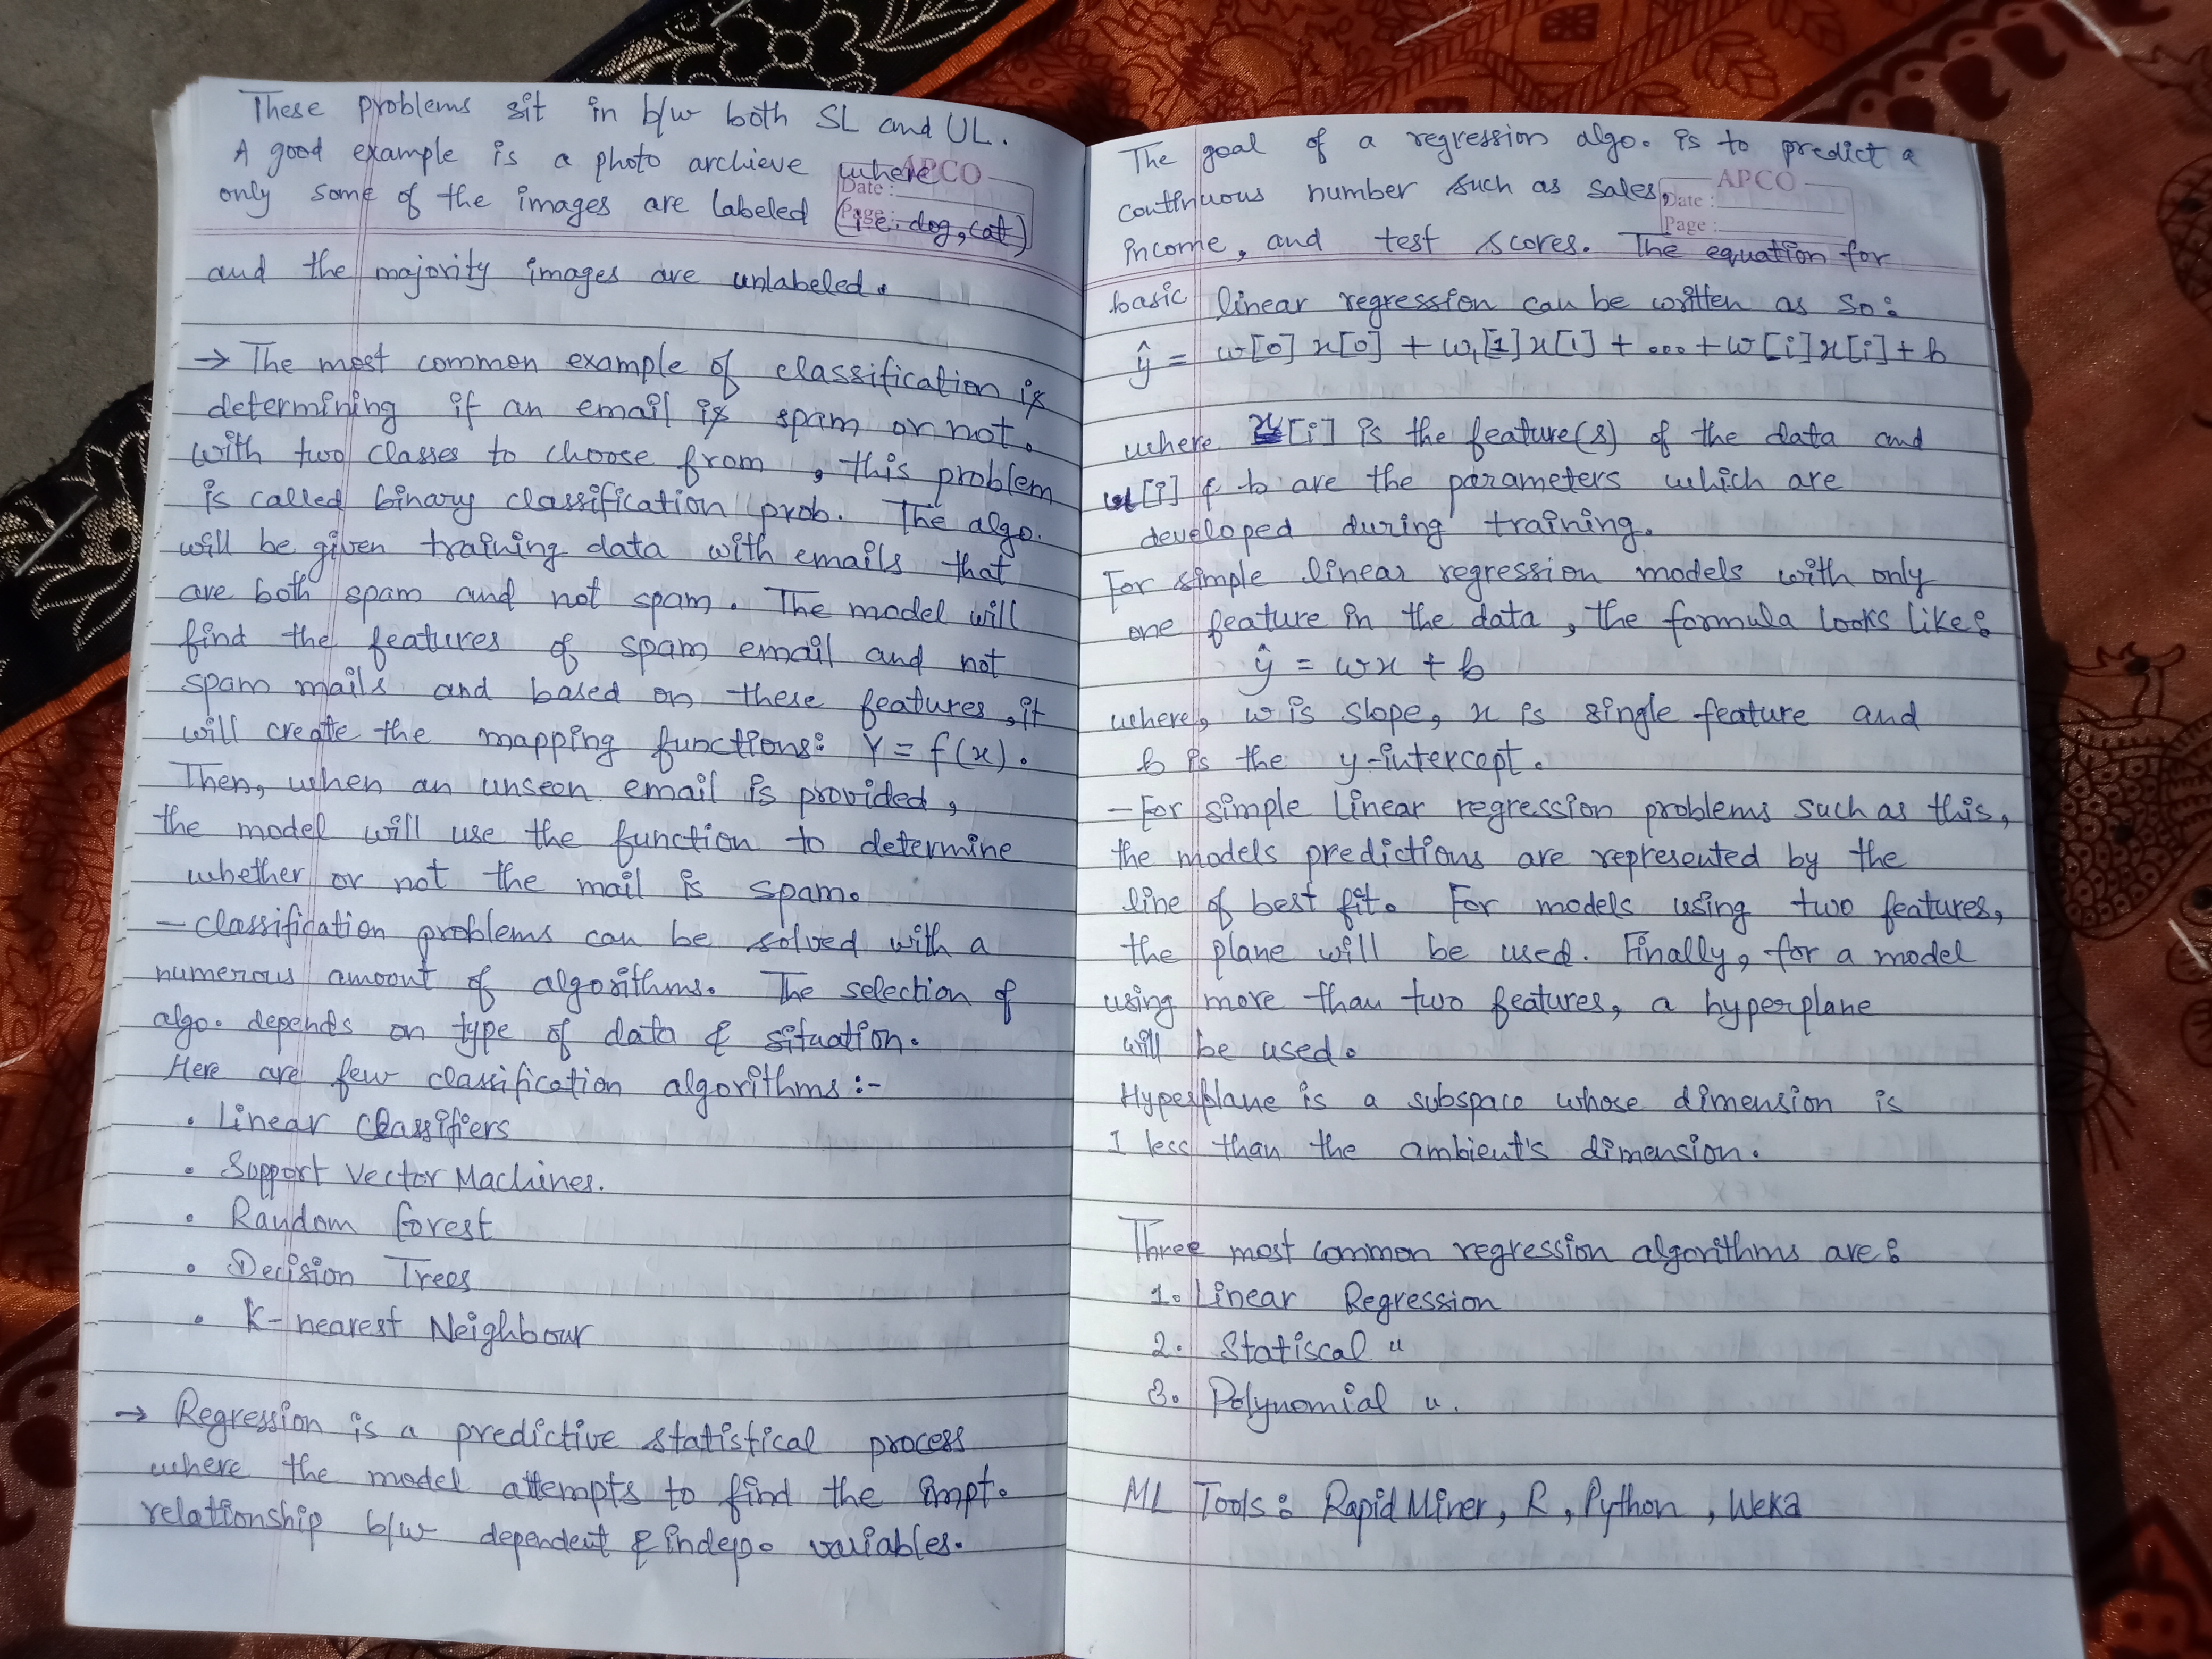 These problems sit in b/w both SL and UL.
A good example is a photo archieve where
only some of the images are labeled (i.e. dog, cat)
APCO
Date :
Page :
and the majority images are unlabeled.
→ The most common example of classification is
determining if an email is spam or not.
with two classes to choose from, this problem
is called binary classification prob. The algo.
will be given training data with emails that
are both spam and not spam. The model will
find the features of spam email and not
spam mails and based on these features, it
will create the mapping functions: Y = f(x).
Then, when an unseen email is provided,
the model will use the function to determine
whether or not the mail is spam.
- Classification problems can be solved with a
numerous amount of algorithms. The selection of
algo. depends on type of data & situation.
Here are few classification algorithms :-
• Linear Classifiers
• Support Vector Machines.
• Random forest
• Decision Trees
• K-nearest Neighbour
→ Regression is a predictive statistical process
where the model attempts to find the impt.
relationship b/w dependent & indep. variables.
The goal of a regression algo. is to predict a
continuous number such as sales,
APCO
Date :
Page :
income, and test scores. The equation for
basic linear regression can be written as so:
ŷ = w[0]x[0] + w,[1]x[i] + ... + w[i]x[i] + b
where x[i] is the feature(s) of the data and
w[i] & b are the parameters which are
developed during training.
For simple linear regression models with only
one feature in the data, the formula looks like:
ŷ = wx + b
where, w is slope, x is single feature and
b is the y-intercept.
- For simple linear regression problems such as this,
the models predictions are represented by the
line of best fit. For models using two features,
the plane will be used. Finally, for a model
using more than two features, a hyperplane
will be used.
Hyperplane is a subspace whose dimension is
1 less than the ambient's dimension.
Three most common regression algorithms are:
1. Linear Regression
2. Statiscal "
3. Polynomial ".
ML Tools: Rapid Miner, R, Python, Weka